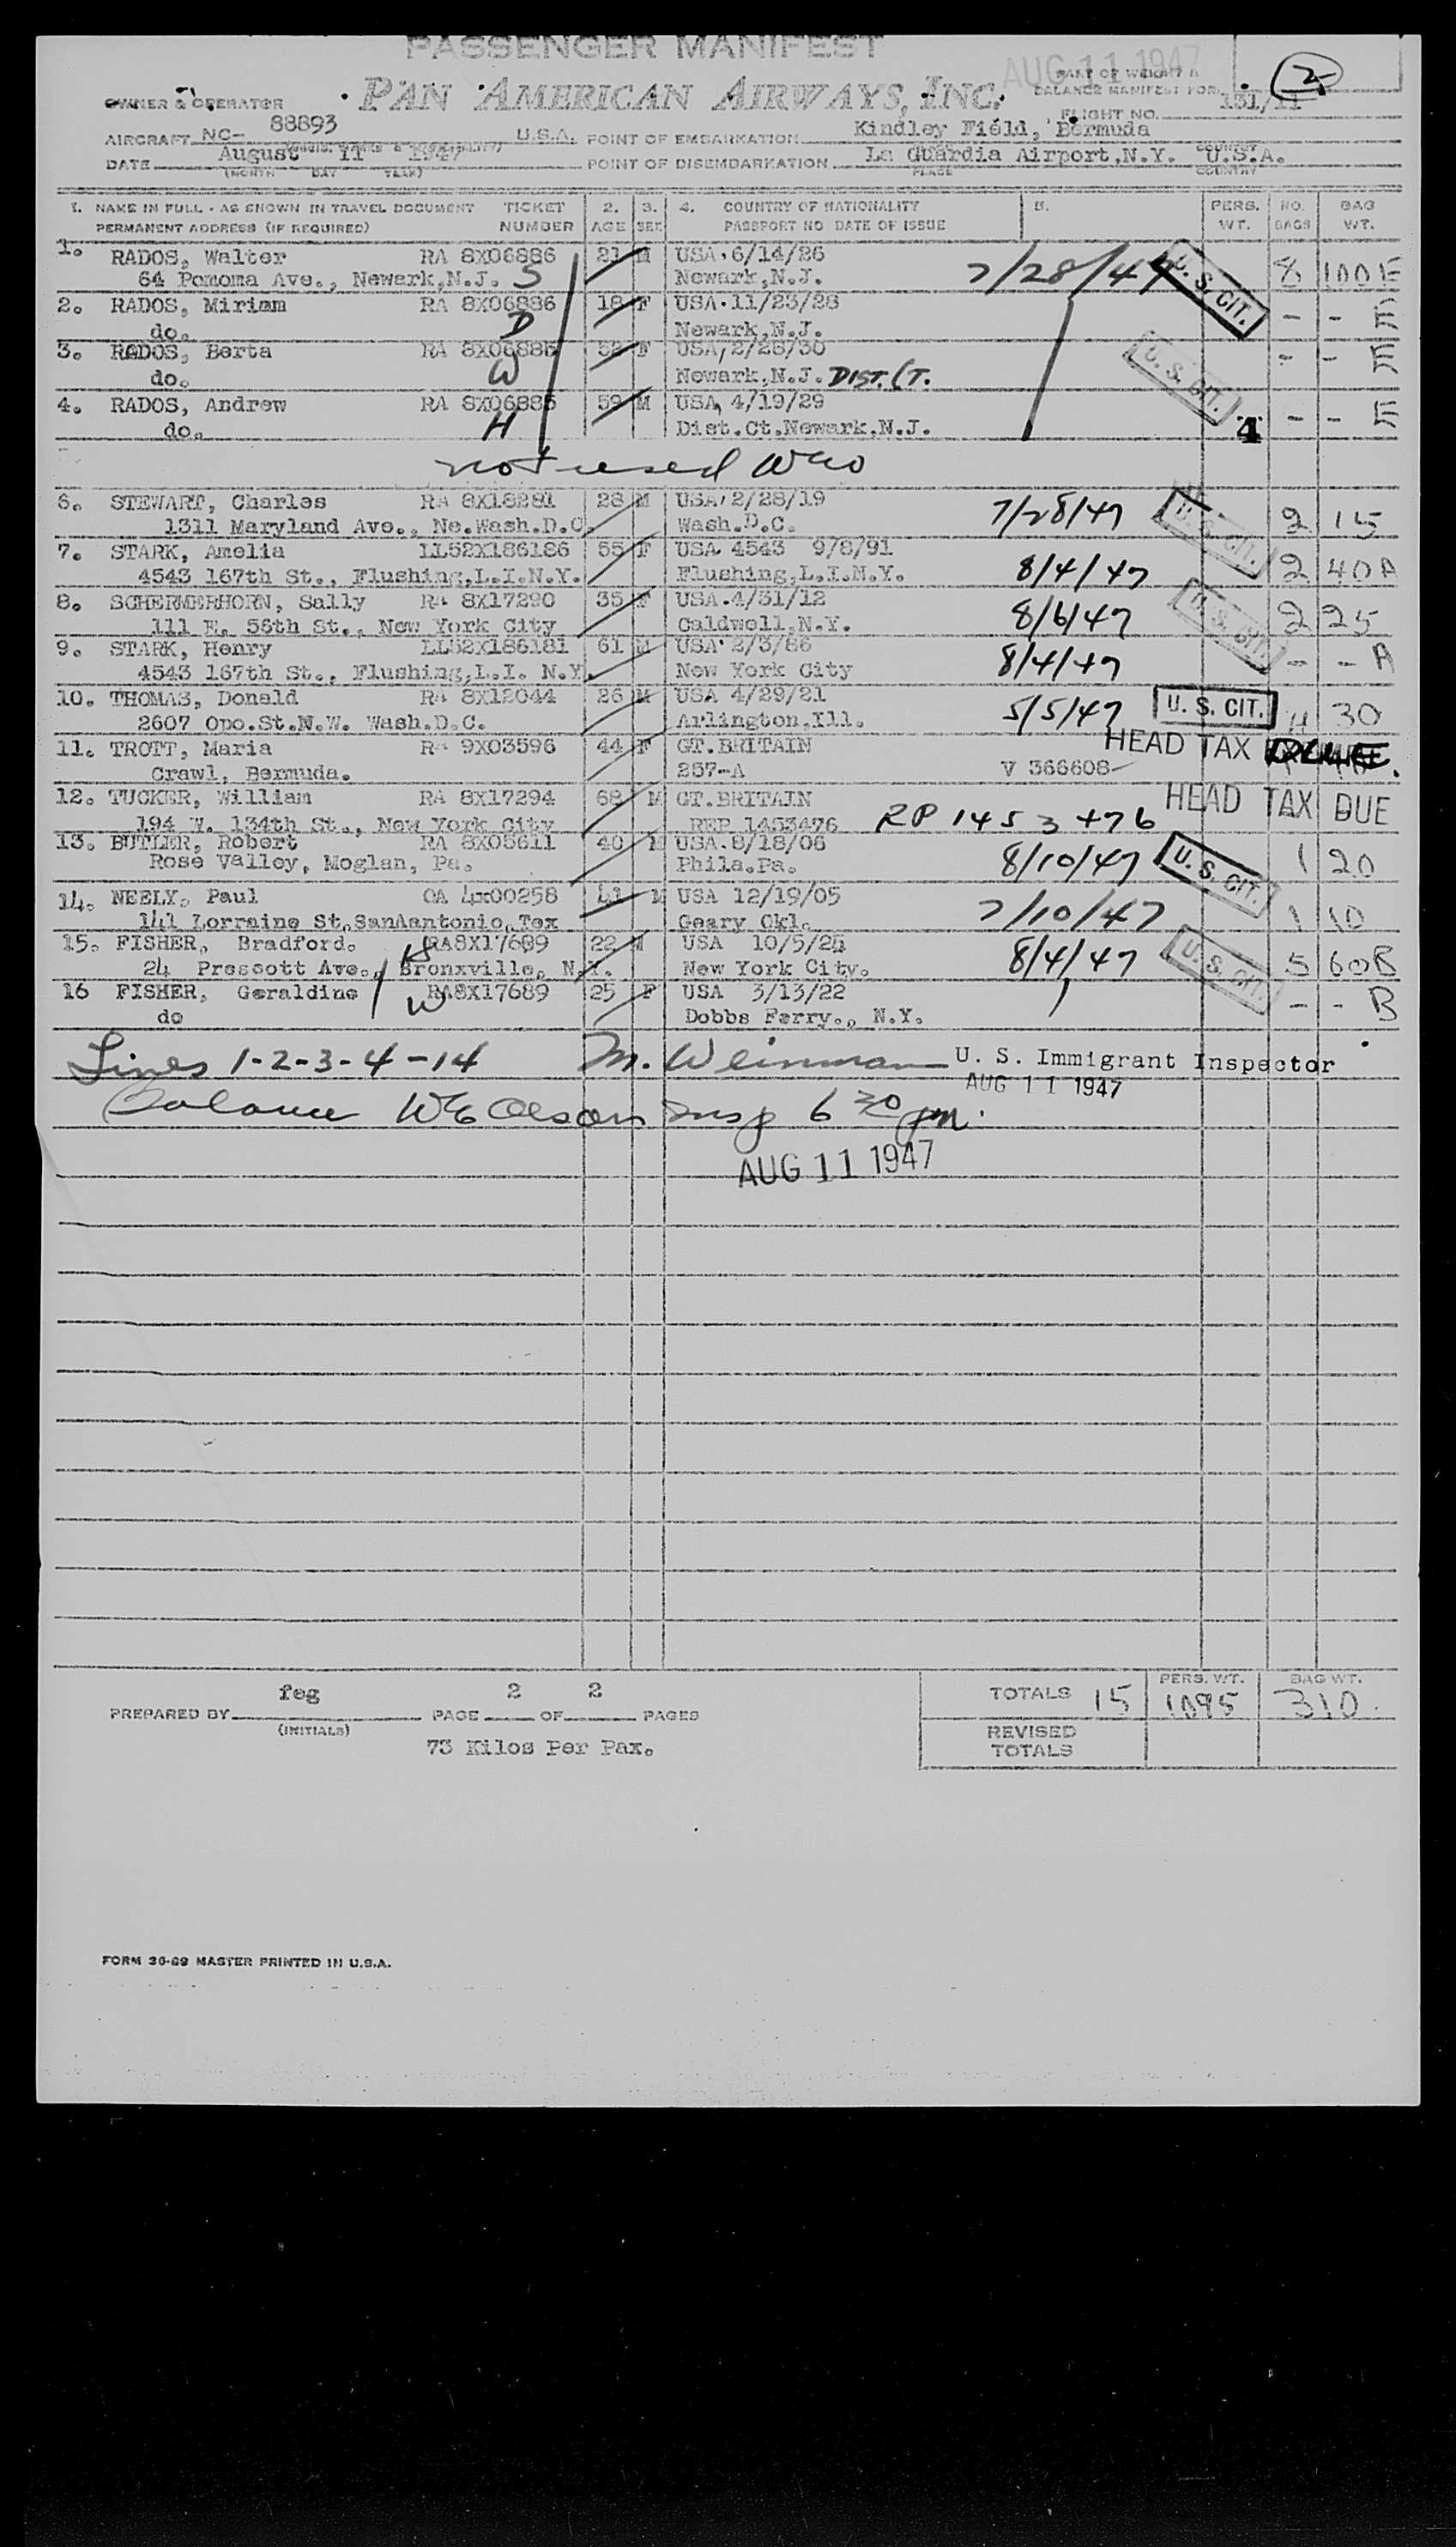 PASSENGER MANIFEST
AUG 11 1947
PAN AMERICAN AIRWAYS, INC.
PART OF WEIGHT &
BALANCE MANIFEST FOR
2
OWNER & OPERATOR
FLIGHT NO. 131/11
AIRCRAFT NC- 88893 U.S.A. POINT OF EMBARKATION Kindley Field, Bermuda
DATE August 11 1947 POINT OF DISEMBARKATION La Guardia Airport, N.Y. U.S.A.
(MONTH DAY YEAR) PLACE COUNTRY
1. NAME IN FULL - AS SHOWN IN TRAVEL DOCUMENT TICKET 2. 3. 4. COUNTRY OF NATIONALITY 5. PERS. NO. BAG
PERMANENT ADDRESS (IF REQUIRED) NUMBER AGE SEX PASSPORT NO DATE OF ISSUE WT. BAGS WT.
1. RADOS, Walter RA 8X06886 21 M USA, 6/14/26 7/28/47 U.S. CIT. 8 100E
64 Pomoma Ave., Newark,N.J. S Newark,N.J.
2. RADOS, Miriam RA 8X06886 18 F USA. 11/23/28 - - E
do. D Newark,N.J.
3. RADOS, Berta RA 8X06885 52 F USA, 2/28/30 U.S. CIT. - - E
do. W Newark,N.J. DIST. CT.
4. RADOS, Andrew RA 8X06885 59 M USA, 4/19/29 4 - - E
do. H Dist.Ct.Newark.N.J.
not used WEO
6. STEWART, Charles RA 8X18281 28 M USA, 2/28/19 7/28/47 U.S. CIT. 2 15
1311 Maryland Ave., Ne.Wash.D.C. Wash.D.C.
7. STARK, Amelia LL52X186186 55 F USA. 4543 9/8/91 8/4/47 2 40A
4543 167th St., Flushing,L.I.N.Y. Flushing,L.I.N.Y.
8. SCHERMERHORN, Sally RA 8X17290 35 F USA.4/31/12 8/6/47 U.S. CIT. 2 25
111 E. 56th St., New York City Caldwell,N.Y.
9. STARK, Henry LL52X186181 61 M USA 2/3/86 8/4/47 - - A
4543 167th St., Flushing,L.I. N.Y. New York City
10. THOMAS, Donald RA 8X12044 26 M USA 4/29/21 5/5/47 U. S. CIT. 4 30
2607 Opo.St.N.W. Wash.D.C. Arlington,Ill.
11. TROTT, Maria RA 9X03596 44 F GT.BRITAIN HEAD TAX
Crawl, Bermuda. 257-A V 366608
12. TUCKER, William RA 8X17294 68 M GT.BRITAIN HEAD TAX DUE
194 W. 134th St., New York City REP 1453476 RP 1453476
13. BUTLER, Robert RA 8X05611 40 M USA.8/18/06 8/10/47 U. S. CIT. 1 20
Rose Valley, Moglan, Pa. Phila.Pa.
14. NEELY, Paul OA 4x00258 41 M USA 12/19/05 7/10/47 1 10
141 Lorraine St.SanAantonio,Tex Geary Okl.
15. FISHER, Bradford. RA8X17689 22 M USA 10/5/24 8/4/47 U. S. CIT. 5 60B
24 Prescott Ave., Bronxville, N.Y. New York City.
16 FISHER, Geraldine RA8X17689 25 F USA 3/13/22 - - B
do W Dobbs Ferry., N.Y.
Lines 1-2-3-4-14 M. Weinman U. S. Immigrant Inspector
AUG 11 1947
Balance WE Olson Insp 6 30 pm.
AUG 11 1947
feg 2 2
PREPARED BY PAGE OF PAGES
(INITIALS)
73 Kilos Per Pax.
PERS. WT. BAG WT.
TOTALS 15 1095 310
REVISED
TOTALS
FORM 36-69 MASTER PRINTED IN U.S.A.